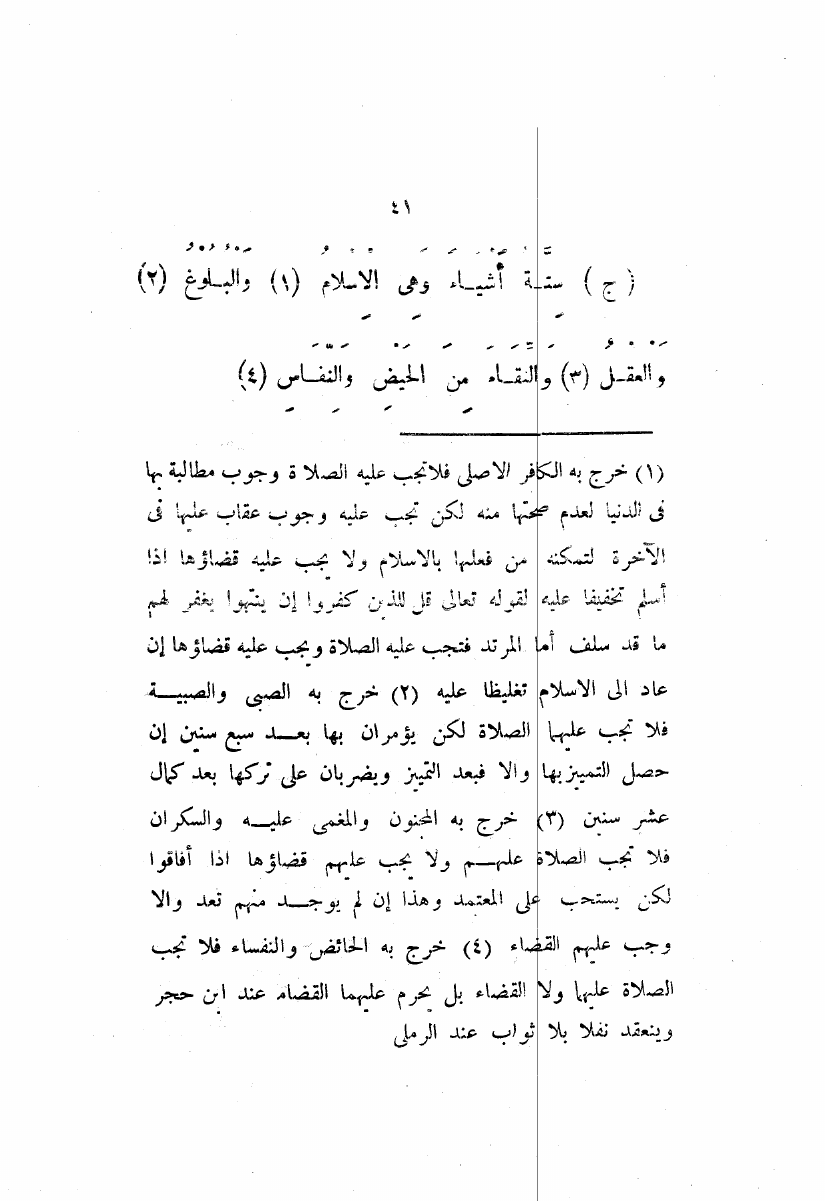 ٤١
( ج ) ستة أشياء وهى الاسلام (١) والبلوغ (٢)
والعقل (٣) والنقاء من الحيض والنفاس (٤)
(١) خرج به الكافر الاصلى فلاتجب عليه الصلاة وجوب مطالبة بها
فى الدنيا لعدم صحتها منه لكن تجب عليه وجوب عقاب عليها فى
الآخرة لتمكنه من فعلها بالاسلام ولا يجب عليه قضاؤها اذا
أسلم تخفيفا عليه لقوله تعالى قل للذين كفروا إن ينتهوا يغفر لهم
ما قد سلف أما المرتد فتجب عليه الصلاة ويجب عليه قضاؤها إن
عاد الى الاسلام تغليظا عليه (٢) خرج به الصبى والصبية
فلا تجب عليهما الصلاة لكن يؤمران بها بعد سبع سنين إن
حصل التمييز بها والا فبعد التمييز ويضربان على تركها بعد كمال
عشر سنين (٣) خرج به المجنون والمغمى عليه والسكران
فلا تجب الصلاة عليهم ولا يجب عليهم قضاؤها اذا أفاقوا
لكن يستحب على المعتمد وهذا إن لم يوجد منهم تعد والا
وجب عليهم القضاء (٤) خرج به الحائض والنفساء فلا تجب
الصلاة عليها ولا القضاء بل يحرم عليهما القضاء عند ابن حجر
وينعقد نفلا بلا ثواب عند الرملى